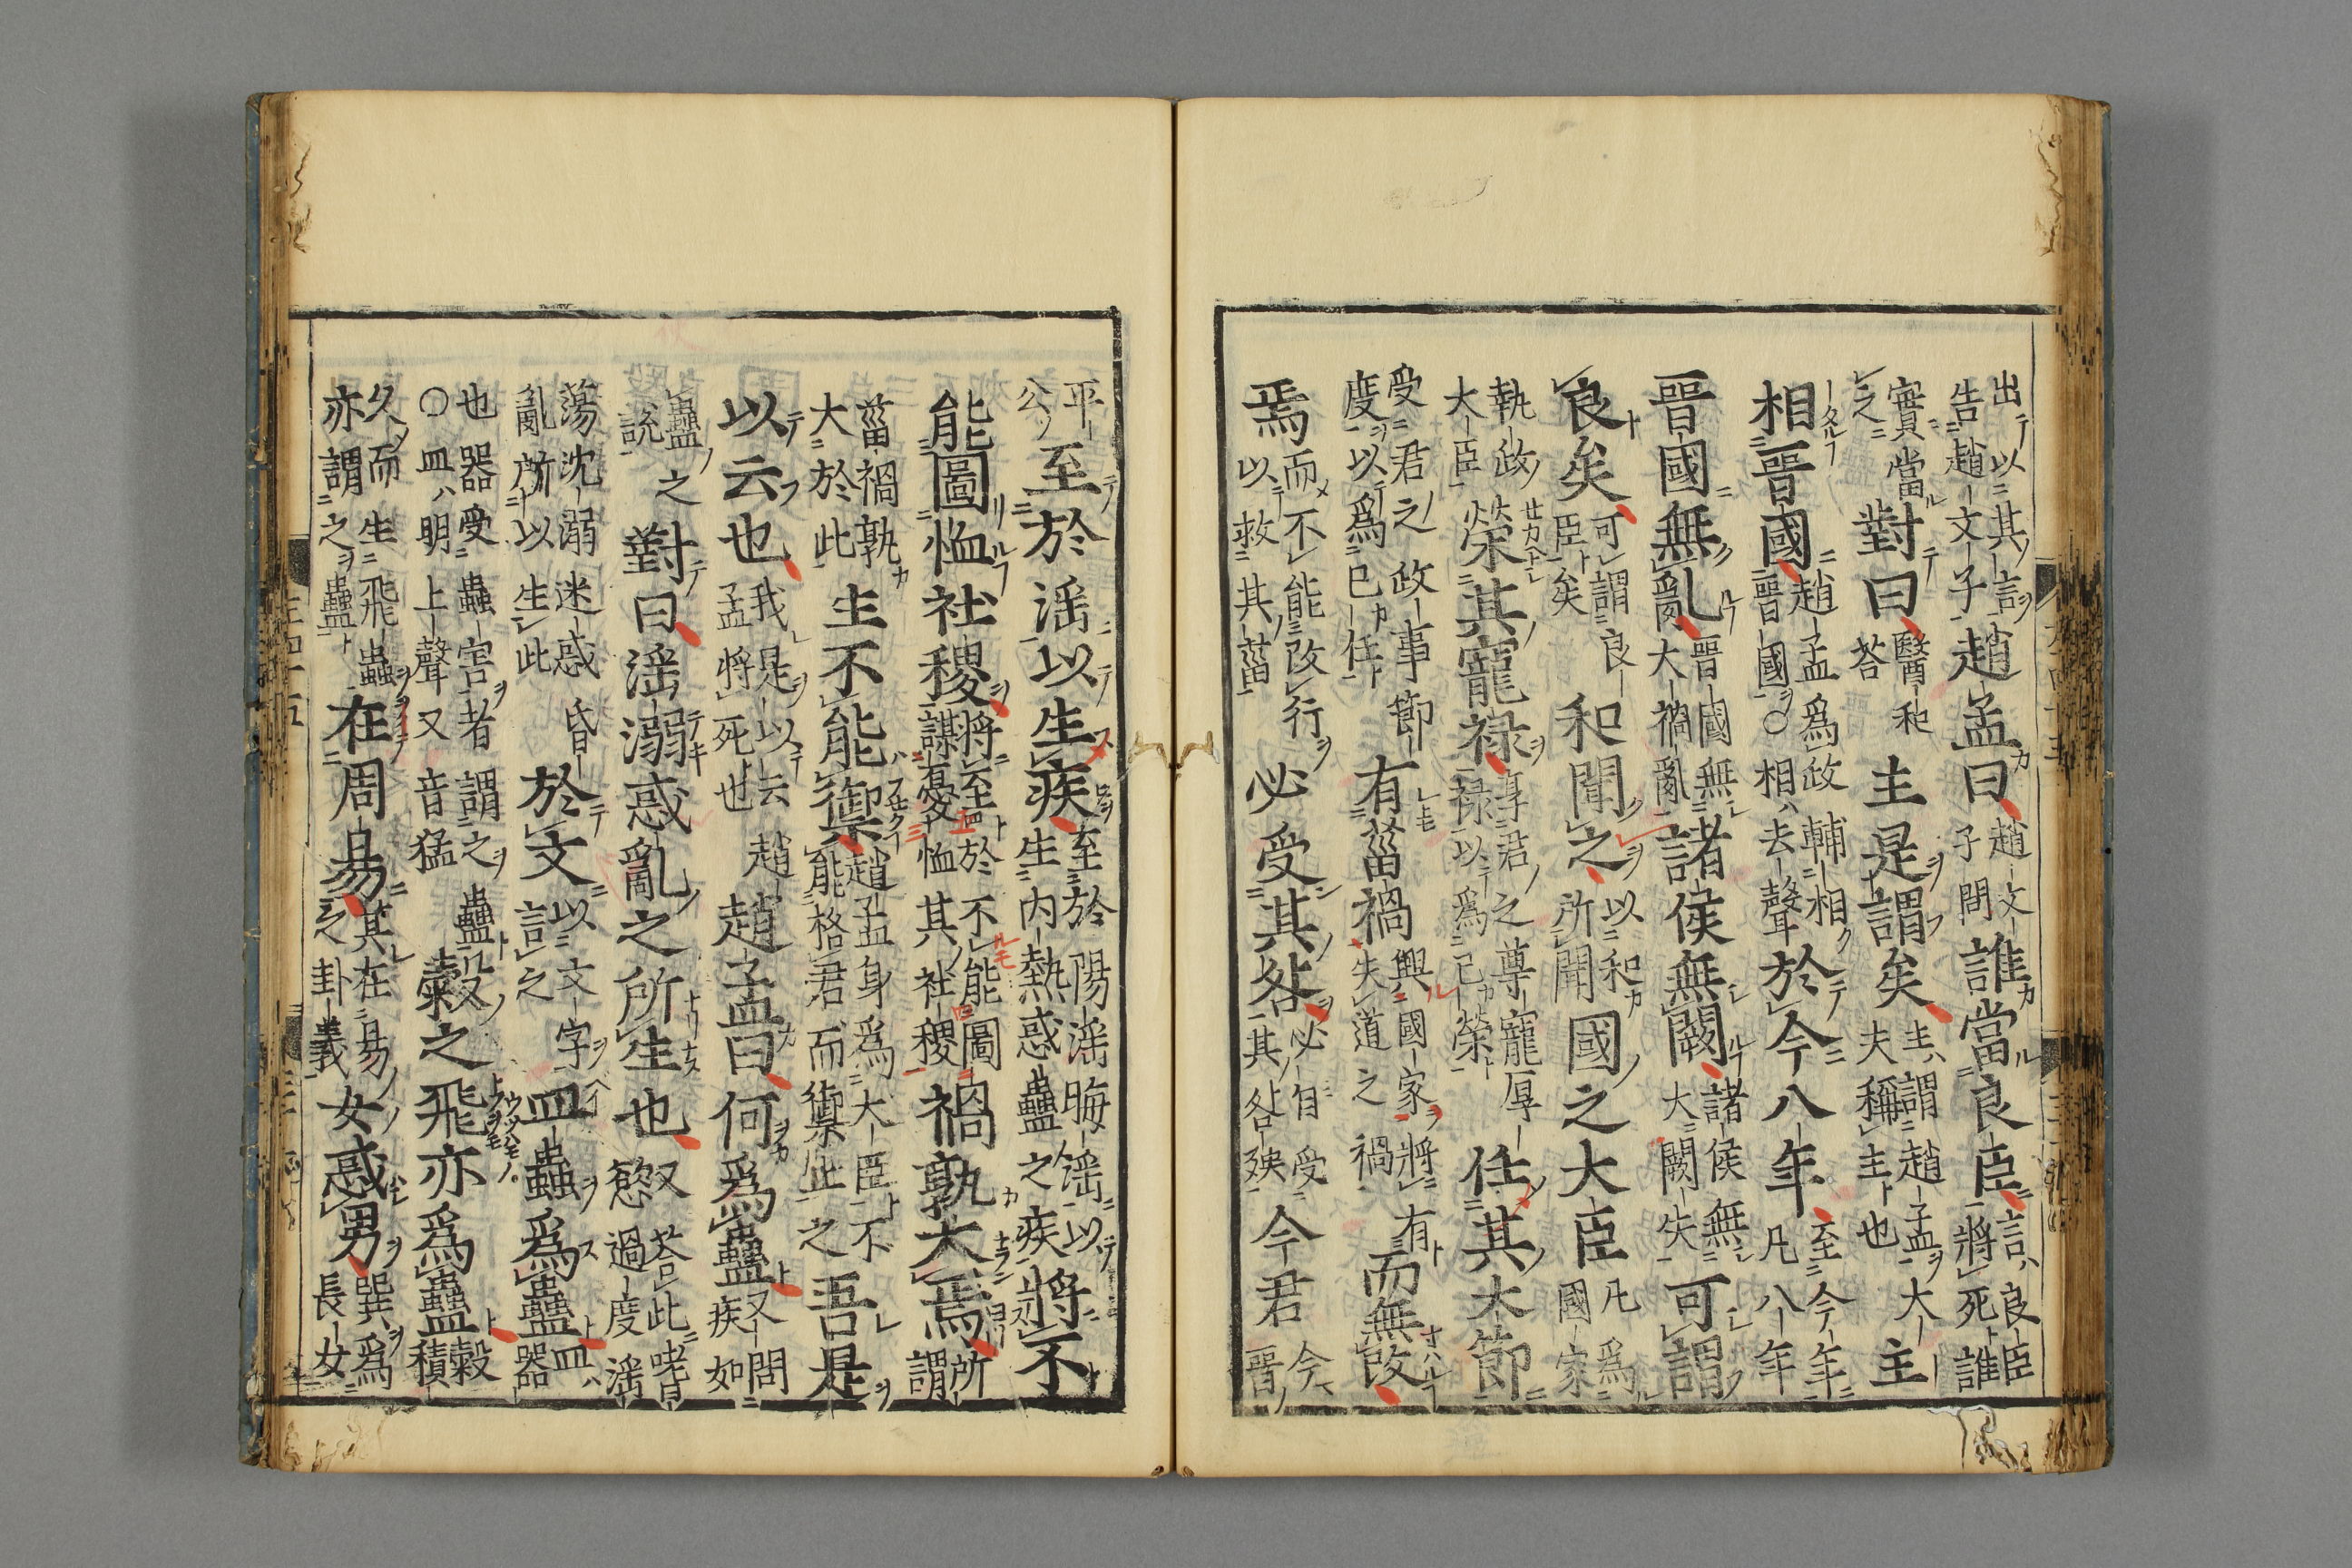 出以其言告趙文子趙孟曰趙文子問誰當良臣言良臣將死誰
實當之對曰醫和荅主是謂矣主謂趙孟大夫稱主也主
相晉國趙孟爲政輔相晉國○相去聲於今八年至今年凡八年
晉國無亂晉國無大禍亂諸侯無闕諸侯無大闕失可謂
良矣可謂良臣矣和聞之以和所聞國之大臣凡爲國家
執政大臣榮其寵祿享君之尊寵厚祿以爲己榮任其大節
受君之政事節度以爲己任有菑禍興國家將有失道之禍而無改
焉而不能改行以救其菑必受其咎必自受其咎殃今君今晉
平公至於淫以生疾至於陽淫晦淫以生內熱惑蠱之疾將不
能圖恤社稷將至於不能圖謀憂恤其社稷禍孰大焉所謂
菑禍孰大於此主不能禦趙孟身爲大臣不能格君而禦止之吾是
以云也我是以云趙孟將死也趙孟曰何爲蠱又問疾如
蠱之說對曰淫溺惑亂之所生也又荅此嗜慾過度淫
蕩沈溺迷惑昏亂所以生此於文以文字言之皿蟲爲蠱皿器
也器受蟲害者謂之蠱○皿明上聲又音猛穀之飛亦爲蠱穀積
久而生飛蟲亦謂之蠱在周易其在易之卦義女惑男巽爲長女